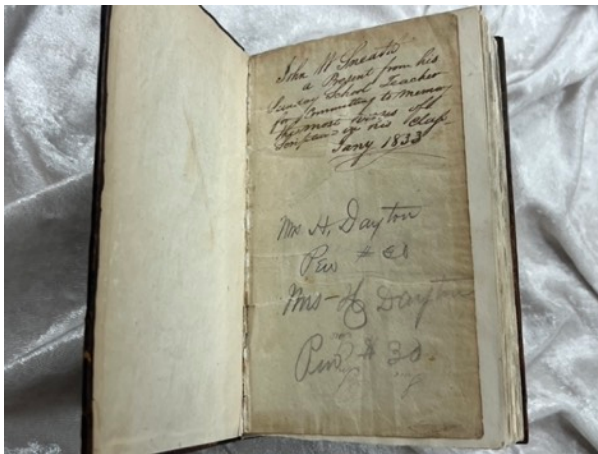 John W
a Present from his
Sunday School Teacher
for Committing to memory
the most verses of
Scripture in his Class
Jany 1833
Mrs H, Dayton
Pew #
Mrs - H Dayton
Pew # 30